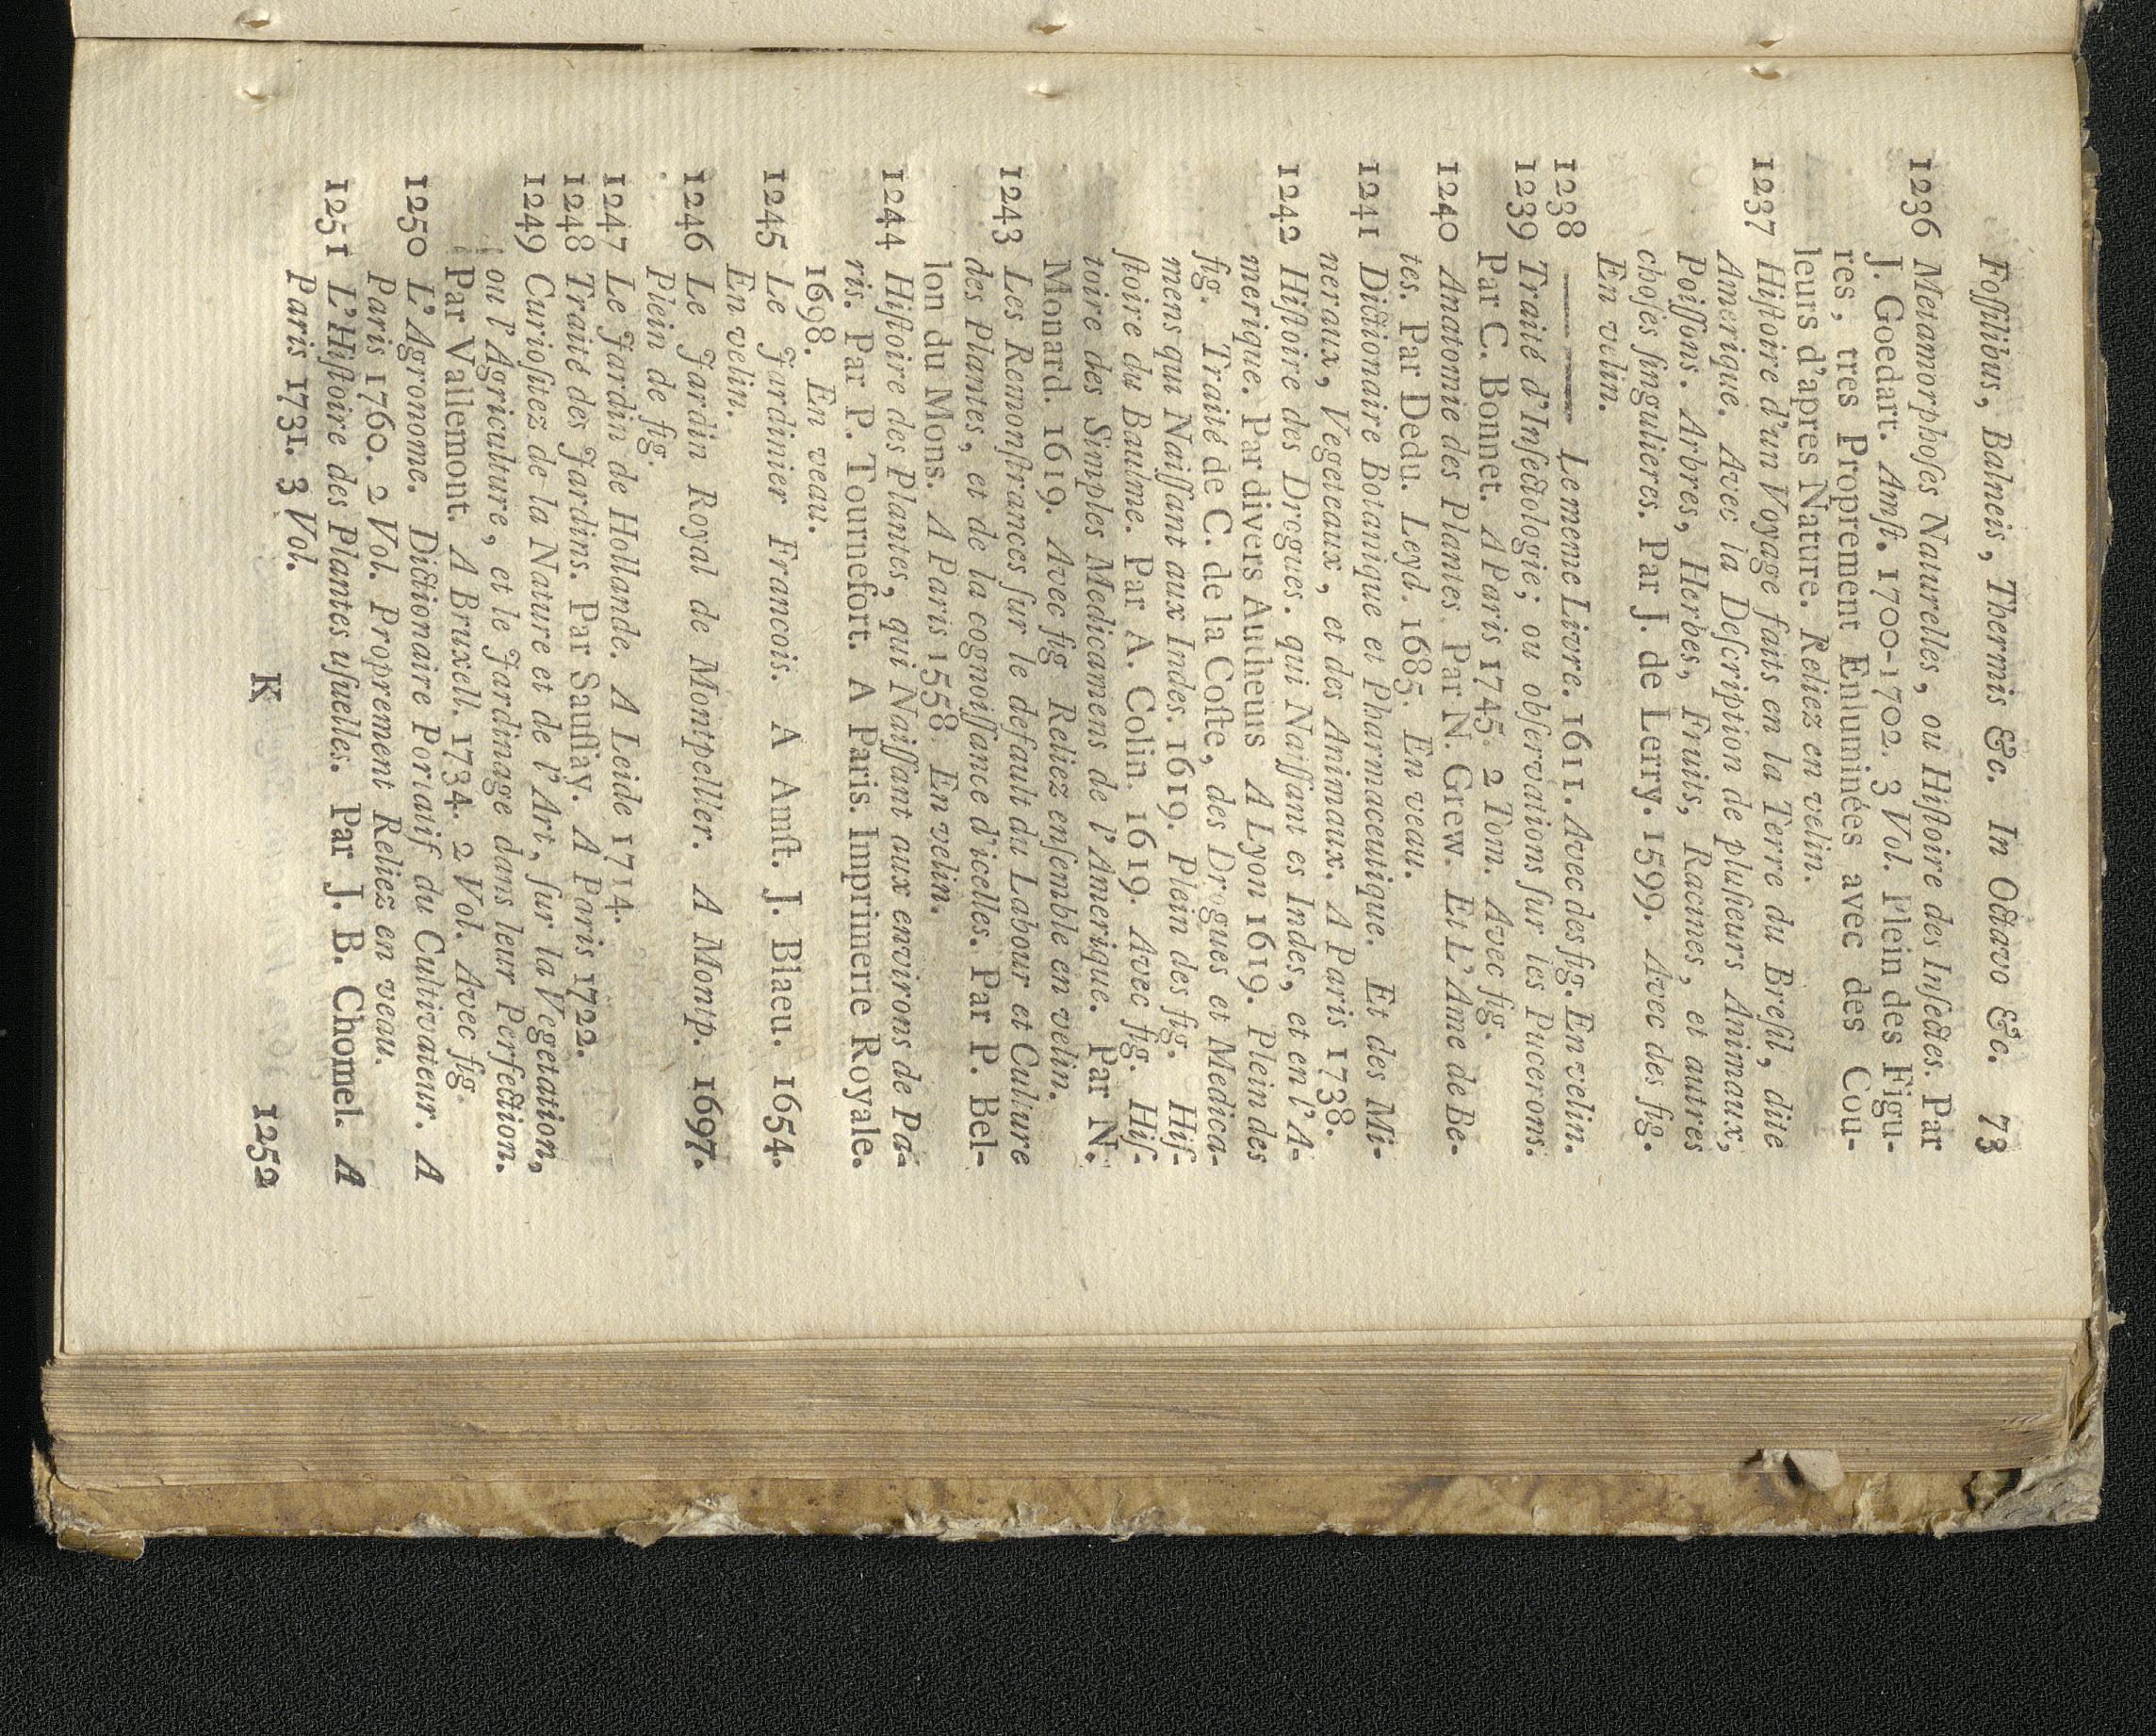 Foſſilibus, Balneis, Thermis &c. In Octavo &c. 73
1236 Metamorphoſes Naturelles, ou Hiſtoire des Inſectes. Par
J. Goedart. Amſt. 1700-1702. 3 Vol. Plein des Figu-
res, tres Proprement Enluminées avec des Cou-
leurs d'apres Nature. Reliez en velin.
1237 Hiſtoire d'un Voyage faits en la Terre du Breſil, dite
Amerique. Avec la Deſcription de pluſieurs Animaux,
Poiſſons. Arbres, Herbes, Fruits, Racines, et autres
choſes ſingulieres. Par J. de Lerry. 1599. Avec des fig.
En velin.
1238 —— —— Le meme Livre. 1611. Avec des fig. En velin.
1239 Traité d'Inſectologie; ou obſervations ſur les Pucerons.
Par C. Bonnet. A Paris 1745. 2 Tom. Avec fig.
1240 Anatomie des Plantes Par N. Grew. Et L'Ame de Be-
tes. Par Dedu. Leyd. 1685. En veau.
1241 Dictionaire Botanique et Pharmaceutique. Et des Mi-
neraux, Vegeteaux, et des Animaux. A Paris 1738.
1242 Hiſtoire des Drogues. qui Naiſſant es Indes, et en l'A-
merique. Par divers Autheurs A Lyon 1619. Plein des
fig. Traité de C. de la Coſte, des Drogues et Medica-
mens qui Naiſſant aux Indes. 1619. Plein des fig. Hiſ-
ſtoire du Baume. Par A. Colin. 1619. Avec fig. Hiſ-
toire des Simples Medicamens de l'Amerique. Par N.
Monard. 1619. Avec fig Reliez enſemble en velin.
1243 Les Remonſtrances ſur le default du Labour et Culture
des Plantes, et de la cognoiſſance d'icelles. Par P. Bel-
lon du Mons. A Paris 1558. En velin.
1244 Hiſtoire des Plantes, qui Naiſſant aux environs de Pa-
ris. Par P. Tournefort. A Paris. Imprimerie Royale.
1698. En veau.
1245 Le Jardinier Francois. A Amſt. J. Blaeu. 1654.
En velin.
1246 Le Jardin Royal de Montpelller. A Montp. 1697.
Plein de fig.
1247 Le Jardin de Hollande. A Leide 1714.
1248 Traité des Jardins. Par Sauſſay. A Paris 1722.
1249 Curioſitez de la Nature et de l'Art, ſur la Vegetation,
ou l'Agriculture, et le Jardinage dans leur Perfection.
Par Vallemont. A Bruxell. 1734. 2 Vol. Avec fig.
1250 L'Agronome. Dictionaire Portatif du Cultivateur. A
Paris 1760. 2 Vol. Proprement Reliez en veau.
1251 L'Hiſtoire des Plantes uſuelles. Par J. B. Chomel. A
Paris 1731. 3 Vol.
K 1252